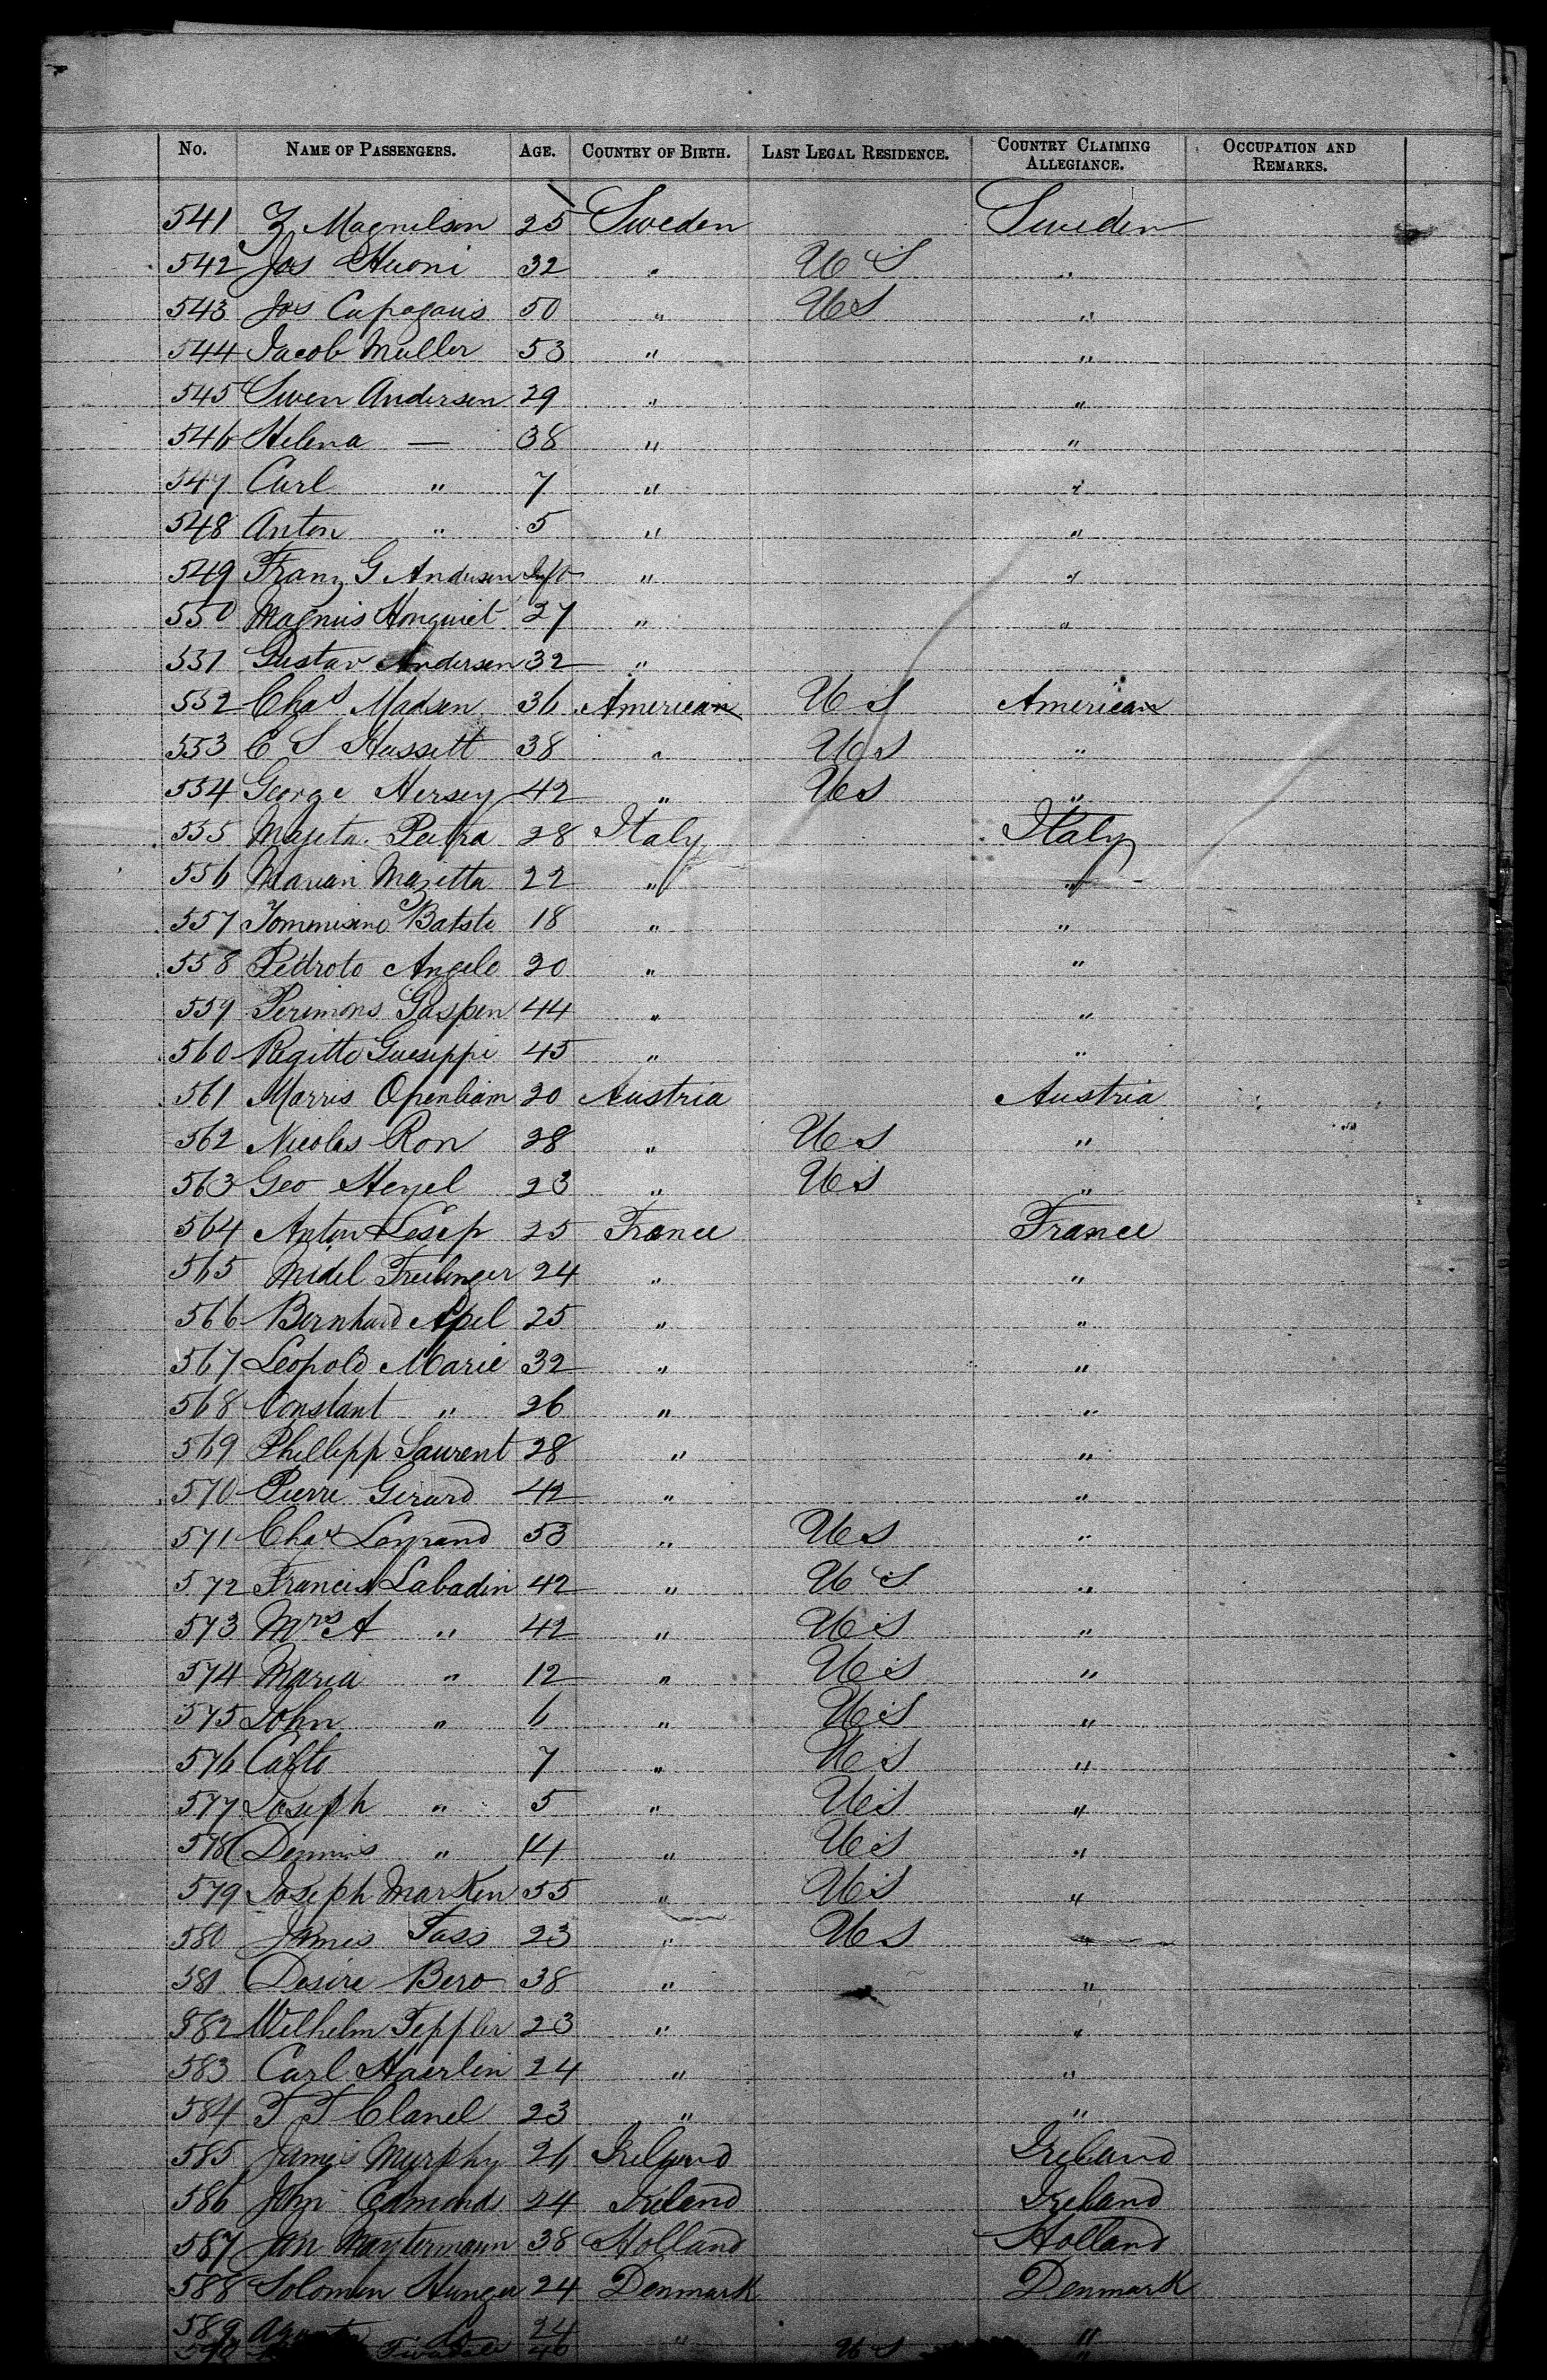 No. NAME OF PASSENGERS. AGE. COUNTRY OF BIRTH. LAST LEGAL RESIDENCE. COUNTRY CLAIMING ALLEGIANCE. OCCUPATION AND REMARKS.
541 Magnilson 25 Sweden Sweden
542 Jos Huoni 32 " U S "
543 Jos Capogaus 50 " US "
544 Jacob Muller 53 " "
545 Swen Andersen 29 " "
546 Helena — 38 " "
547 Carl " 7 " "
548 Anton " 5 " "
549 Franz G Andersen Inft " "
550 Magnus Honquiet 27 " "
551 Gustav Andersen 32 "
552 Chas Madsen 36 American U S American
553 C S Hussett 38 " US "
554 George Hersey 42 " US "
555 Majeta Petra 28 Italy Italy
556 Marian Mazetta 22 " "
557 Tommisino Batste 18 " "
558 Pedroto Angelo 20 " "
559 Perimons Gaspen 44 " "
560 Regitto Gueseppi 45 " "
561 Morris Openhaim 20 Austria Austria
562 Nicolas Ron 28 " US "
563 Geo Henzel 23 " US "
564 Anton Lesep 25 France France
565 Midel Freilinger 24 " "
566 Bernhard Apel 25 " "
567 Leopold Marie 32 " "
568 Constant " 26 " "
569 Phillipp Laurent 28 " "
570 Pierre Gerard 42 " "
571 Chas Legrand 53 " US "
572 Francis Labadin 42 " U S "
573 Mrs A " 42 " US "
574 Maria " 12 " US "
575 John " 6 " US "
576 7 " US "
577 Joseph " 5 " US "
578 Dennis " 14 " US "
579 Joseph Marken 55 " US "
580 James Tass 23 " US "
581 Desire Bero 38 " "
582 Wilhelm Teppler 23 " "
583 Carl Haerlin 24 " "
584 T T Clanel 23 " "
585 James Murphy 26 Ireland Ireland
586 John Edmonds 24 Ireland Ireland
587 Jan Maytermann 38 Holland Holland
588 Solomon Hunger 24 Denmark Denmark
589 do 24 " "
590 40 U S "